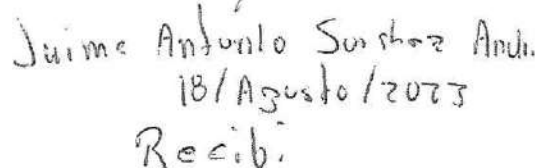 Jaime Antonio Sanchez Andr.
18/Agosto/2023
Recibi